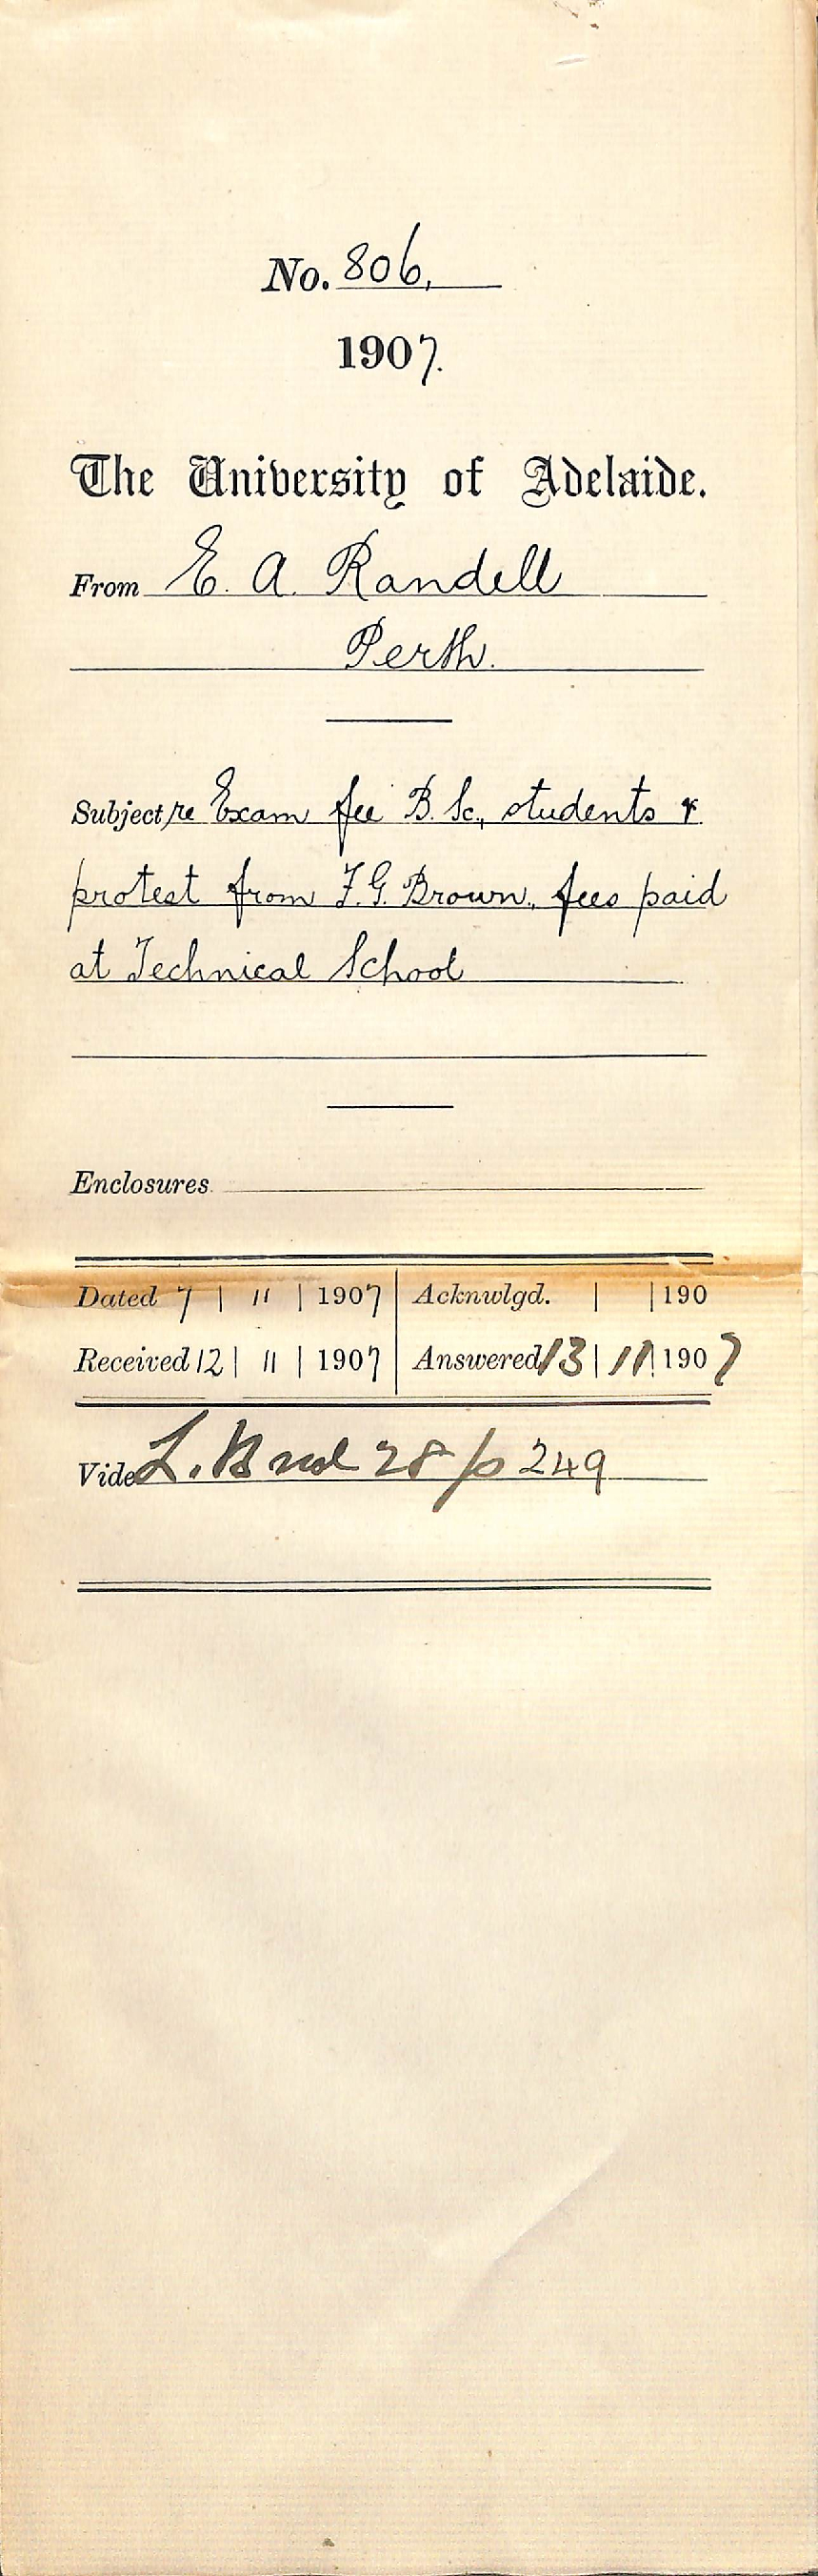 No. 806.
1907.
The University of Adelaide.
From E. A. Randell
Perth.
Subject re Exam fee B. Sc., students &
protest from F. G. Brown. fees paid
at Technical School
Enclosures
Dated 7 | 11 | 1907 | Acknwlgd. | | 190
Received 12 | 11 | 1907 | Answered 13 | 11 | 1907
Vide L. B vol 28 p 249